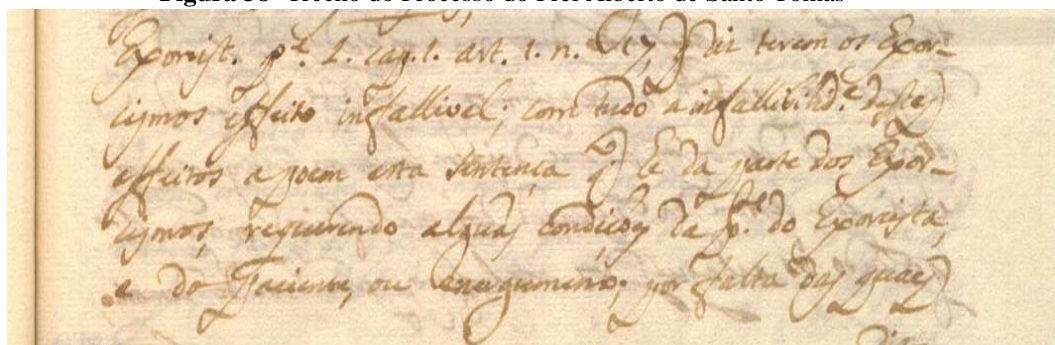 Figura 38 - Trecho do Processo do Frei Alberto de Santo Tomás
Exorcist. p.e 2. cap. 1. art. 1. n. q dis terem os Exor-
cismos effeito infallivel; com tudo a infallibilid.e destes
effeitos a poem esta sentença q he da parte dos Exor-
cismos, requerendo alguãs condicoẽs da p.te do Exorcista,
e do Paciente, ou energumeno; por falta das quaes